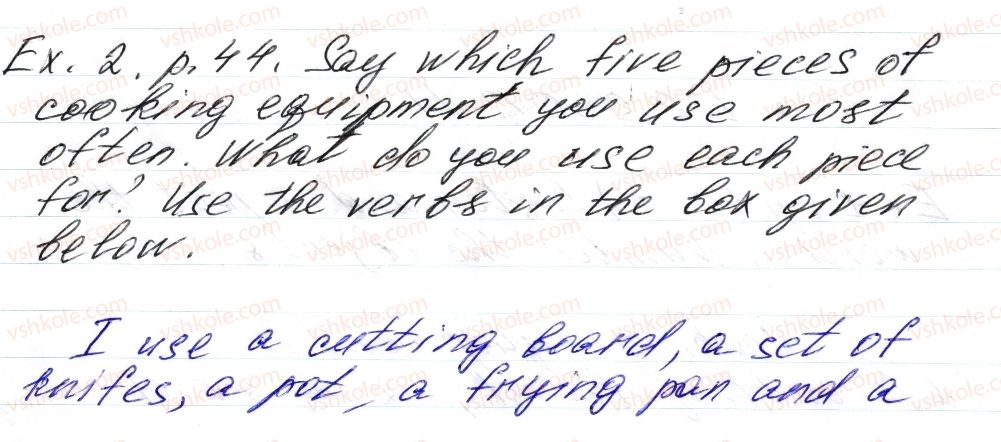 Ex. 2. p. 44. Say which five pieces of
cooking equipment you use most
often. What do you use each piece
for? Use the verbs in the box given
below.
I use a cutting board, a set of
knifes, a pot, a frying pan and a